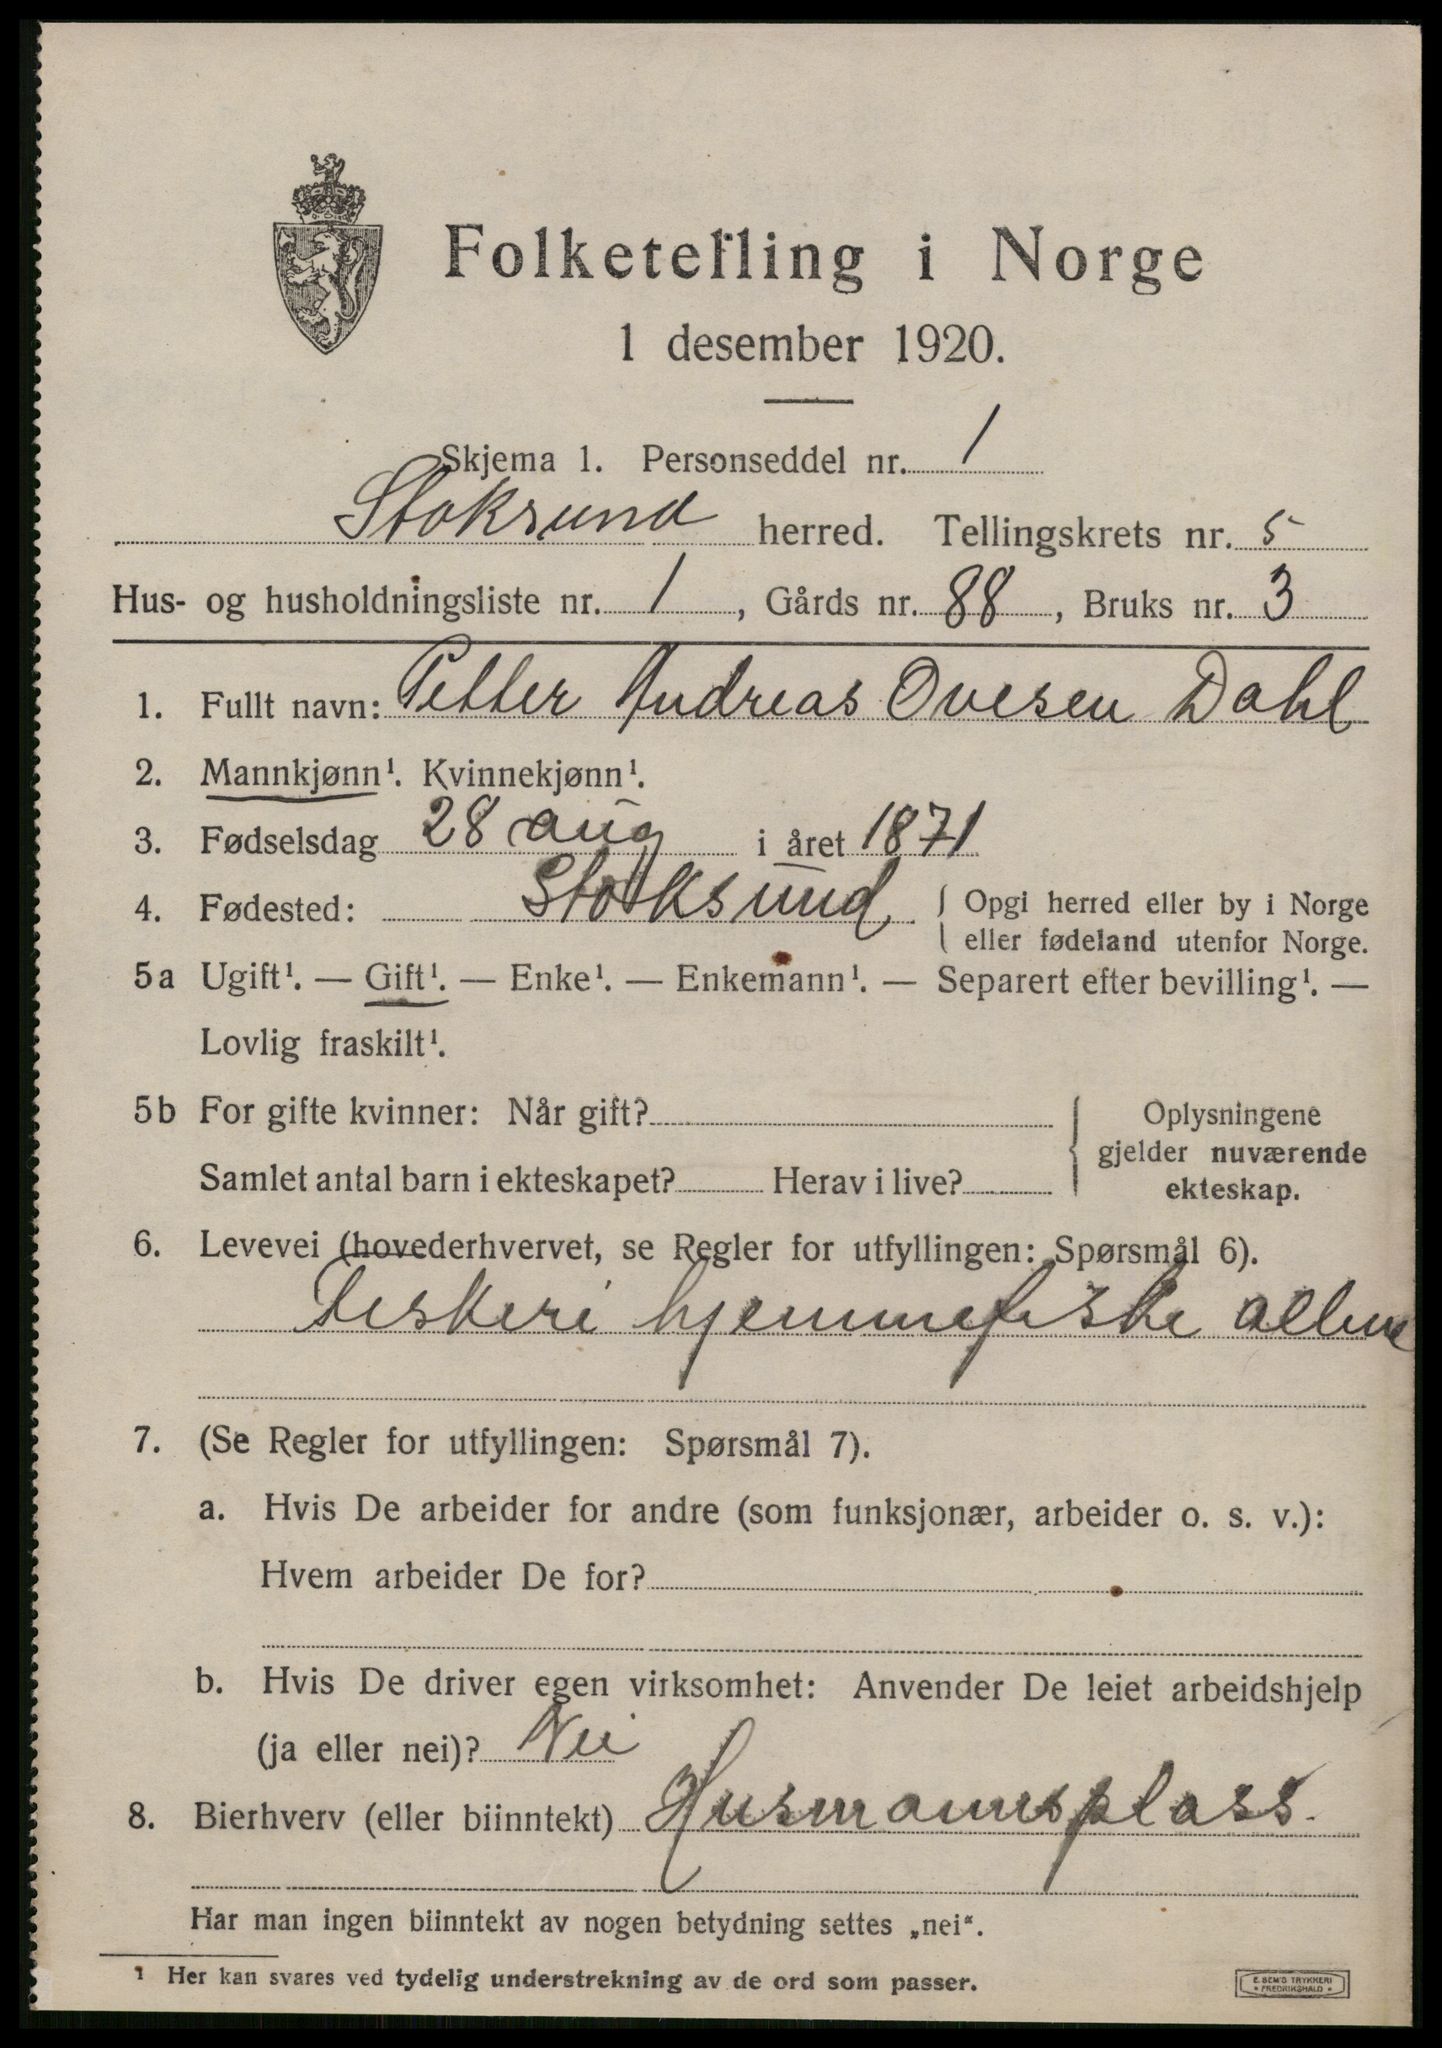 Folketelling i Norge
1 desember 1920.
Skjema 1. Personseddel nr. 1
Stoksund herred. Tellingskrets nr. 5
Hus- og husholdningsliste nr. 1, Gårds nr. 88, Bruks nr. 3
1. Fullt navn: Petter Andreas Ovesen Dahl
2. Mannkjønn¹. Kvinnekjønn¹.
3. Fødselsdag 28 aug i året 1871
4. Fødested: Stoksund { Opgi herred eller by i Norge
eller fødeland utenfor Norge.
5a Ugift¹. — Gift¹. — Enke¹. — Enkemann¹. — Separert efter bevilling¹. —
Lovlig fraskilt¹.
5b For gifte kvinner: Når gift? { Oplysningene
gjelder nuværende
Samlet antal barn i ekteskapet? Herav i live? ekteskap.
6. Levevei (hovederhvervet, se Regler for utfyllingen: Spørsmål 6).
Fiskeri hjemmefiske allene
7. (Se Regler for utfyllingen: Spørsmål 7).
a. Hvis De arbeider for andre (som funksjonær, arbeider o. s. v.):
Hvem arbeider De for?
b. Hvis De driver egen virksomhet: Anvender De leiet arbeidshjelp
(ja eller nei)? Nei
8. Bierhverv (eller biinntekt) Husmannsplass
Har man ingen biinntekt av nogen betydning settes „nei“.
¹ Her kan svares ved tydelig understrekning av de ord som passer.
E. SEM'S TRYKKERI
* FREDRIKSHALD *